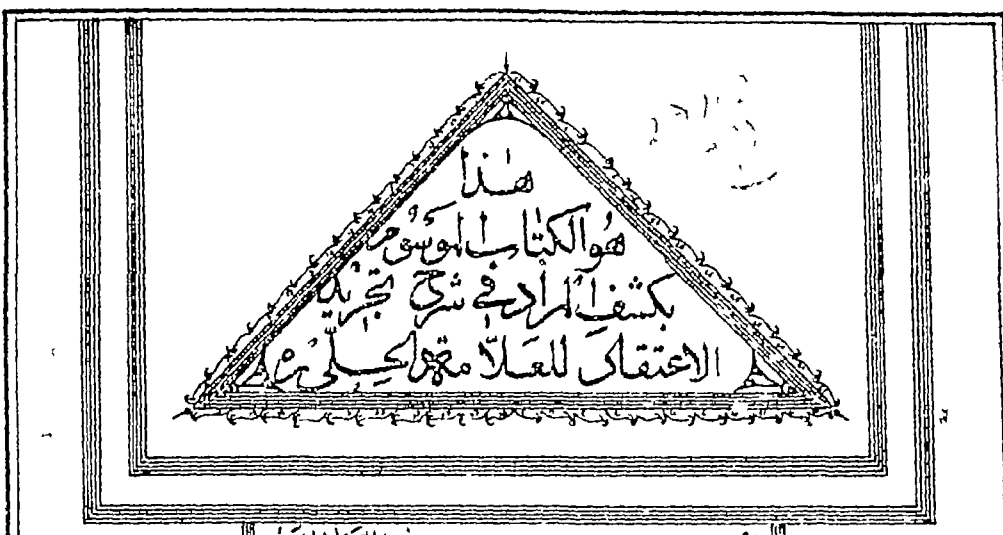 هذا
هو الكتاب الموسوم
بكشف المراد في شرح تجريد
الاعتقاد للعلامة الحلي ره